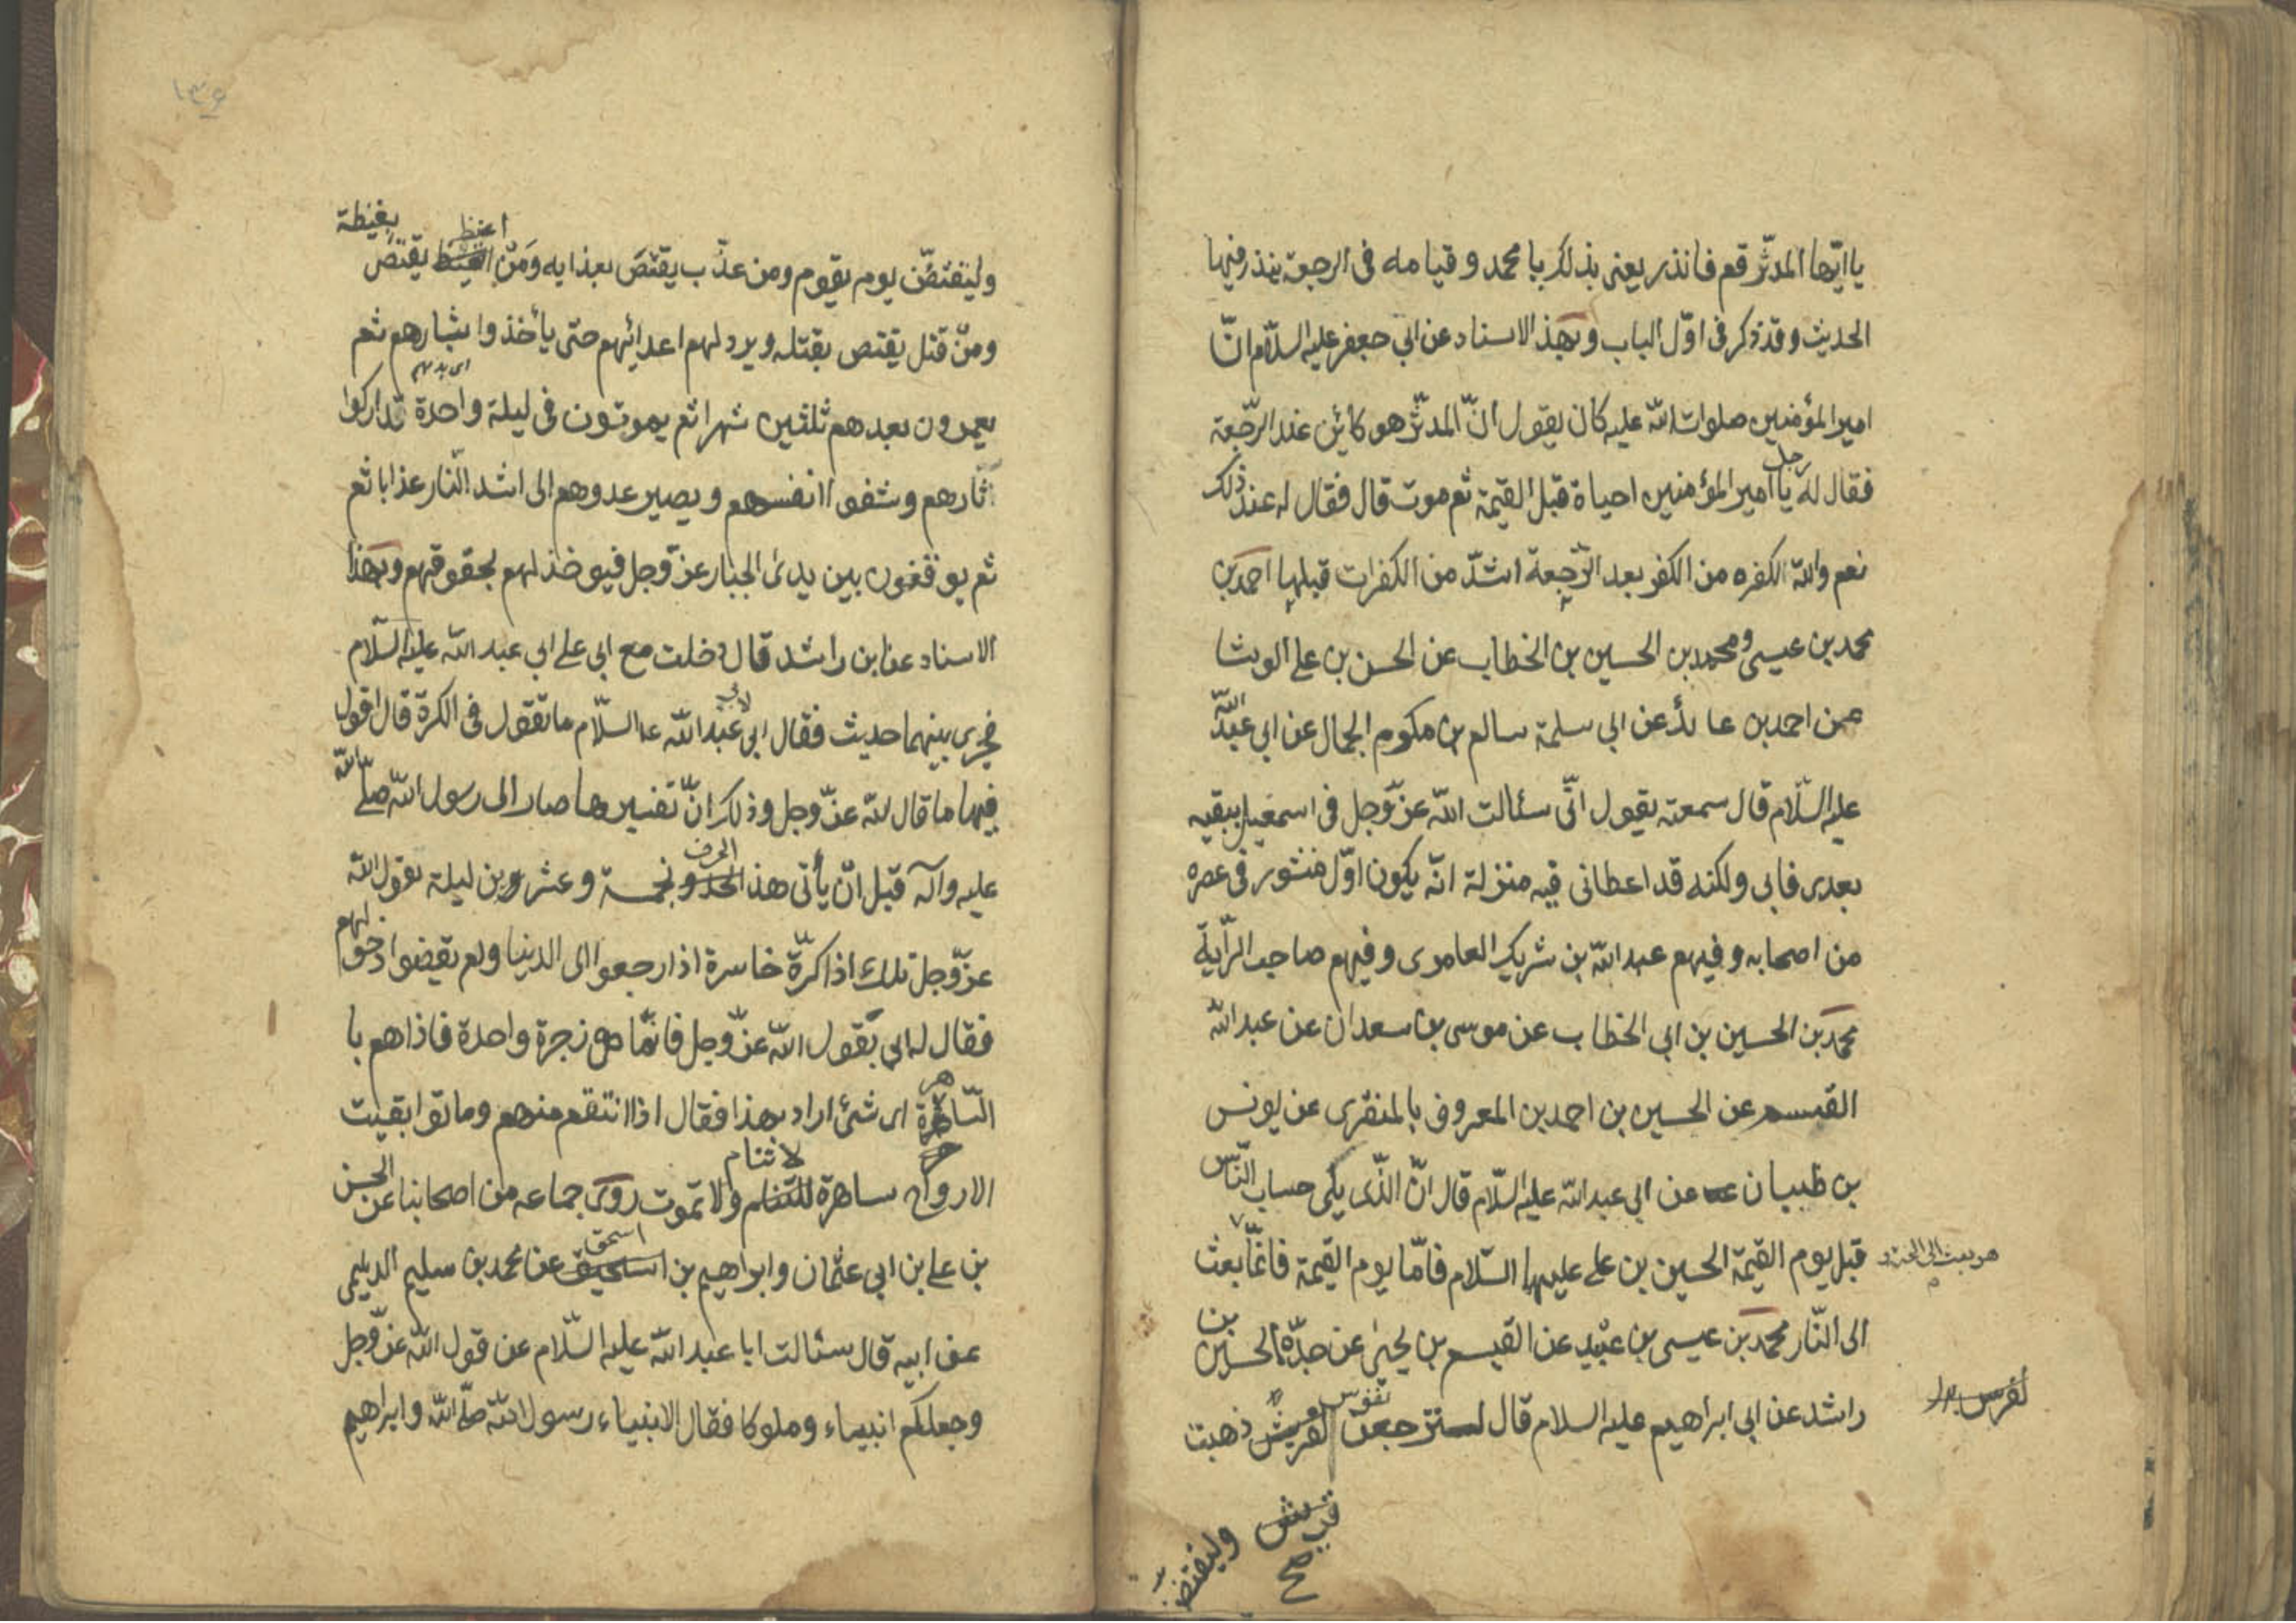 يا ايّها المدثّر قم فانذر يعنى بذلك يا محمد و قيامه فى الرجعة ينذر فيها
الحديث و قد ذكر فى اوّل الباب و بهذ الاسناد عن ابي جعفر عليه السلام انّ
امير المؤمنين صلوات الله عليه كان يقول انّ المدثّر هو كائن عند الرّجعة
فقال له رجل يا امير المؤمنين احياة قبل القيمة ثم موت قال فقال له عند ذلك
نعم و الله الكفره من الكفر بعد الرّجعة اشدّ من الكفرات قبلها احمد بن
محمد بن عيسى و محمد بن الحسين بن الخطاب عن الحسن بن على الوشا
عن احمد بن عائذ عن ابي سلمة سالم بن مكرم الجمال عن ابي عبد الله
عليه السّلام قال سمعته يقول انّى سئالت الله عزّ وجل فى اسمعيل يبقيه
بعدى فابى ولكنه قد اعطانى فيه منزلة انّه يكون اوّل منشور فى عصره
من اصحابه و فيهم عبد الله بن شريك العامرى و فيهم صاحب الرّاية
محمد بن الحسين بن ابي الخطاب عن موسى بن سعدان عن عبد الله
القيسم عن الحسين بن احمد بن المعروف بالمنقرى عن يونس
بن ظبيان عن ابي عبد الله عليه السّلام قال انّ الذّى يلى حساب النّاس
قبل يوم القيمة الحسين بن على عليهما السّلام فامّا يوم القيمة فانّما بعث
الى النّار محمد بن عيسى بن عبيد عن القيسم بن يحيى عن جدّه الحسن بن
راشد عن ابى ابراهيم عليه السلام قال لسترجعن نفوس ذهبت
وليقتصّ
صح
وليقتصّن يوم يقوم و من عذّب يقتصّ بعذابه و مَن اغيظ يقتصّ بغيظة
و من قتل يقتص بقتله و يرد لهم اعدائهم حتّى يأخذوا بثارهم ثم
يعمرون بعدهم ثلثين شهرا ثم يموتون فى ليلة واحدة قد اركوا
ثارهم و شفوا انفسهم و يصير عدوهم الى اشد النّار عذابا ثم
ثم يوقفون بين يدى الجبار عزّ وجل فيوخذ لهم بحقوقهم و بهذا
الاسناد عن ابن راشد قال دخلت مع ابي على ابي عبد الله عليه السّلام
فجرى بينهما حديث فقال ابي لابي عبد الله ع السّلام ما تقول فى الكرة قال اقول
فيها ما قال الله عزّ وجل و ذلك انّ تفسيرها صار الى رسول الله صلّى الله
عليه و آله قبل انّ يأتى هذ الحرف بخمسة و عشرين ليلة يقول الله
عزّ وجل تلك اذا كرّة خاسرة اذا رجعوا الى الدنيا و لم يقضوا ذحولهم
فقال له ابي يقول الله عزّ وجل فانّما هى زجرة واحدة فاذا هم با
السّاهرة اى شئ اراد بهذا فقال اذا انتقم منهم و ماتوا بقيت
الارواح ساهرة لا تنام و لا تموت روى جماعه من اصحابنا عن الحسن
بن على بن ابي عثمان و ابراهيم بن اسحق عن محمد بن سليم الديلمى
عن ابيه قال سئالت ابا عبد الله عليه السّلام عن قول الله عزّ وجل
و جعلكم انبياء و ملوكا فقال الانبياء رسول الله صلّى الله و ابراهيم